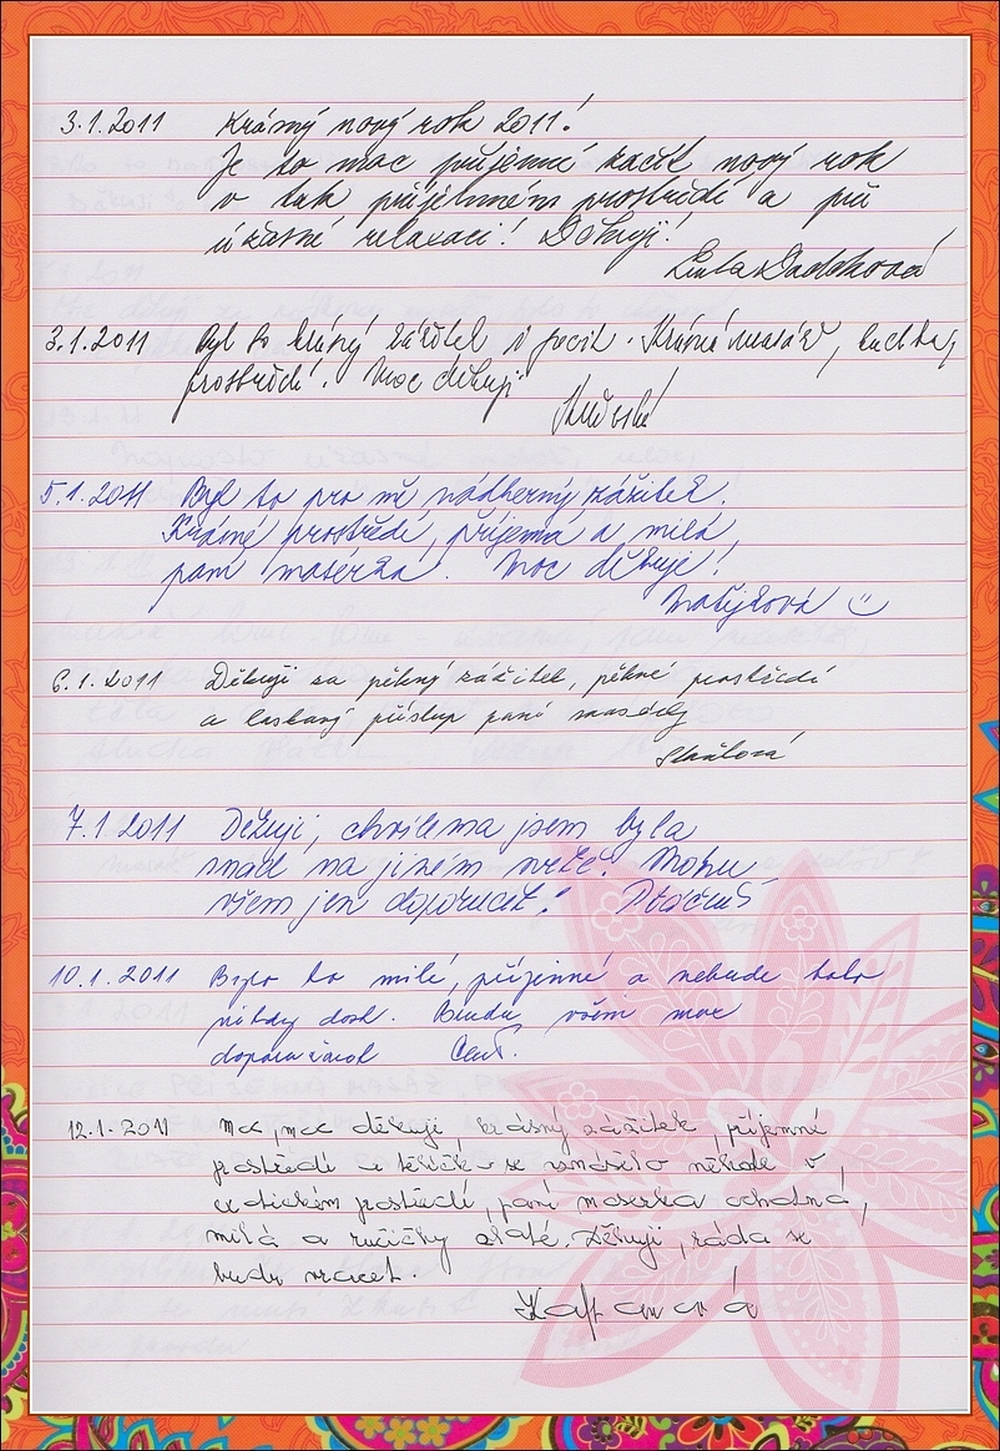 3.1.2011 Krásný nový rok 2011!
Je to moc příjemné začít nový rok
v tak příjemném prostředí a při
úžasné relaxaci! Děkuji!
3.1.2011 Byl to krásný zážitek i pocit. Krásná masáž,
prostředí. Moc děkuji
5.1.2011 Byl to pro mě nádherný zážitek.
Krásné prostředí, příjemná a milá,
paní masérka. Moc děkuje!
Matějková
6.1.2011 Děkuji za pěkný zážitek, pěkné prostředí
a laskavý přístup paní masérky
7.1.2011 Děkuji, chvílema jsem byla
snad na jiném světě! Mohu
všem jen doporučit!
10.1.2011 Bylo to milé, příjemné a nebude toho
nikdy dost. Budu všem moc
doporučovat
12.1.2011 Moc, moc děkuji, krásný zážitek, příjemné
prostředí a tělíčko se vznášelo někde v
exotickém prostředí, paní maserka ochotná,
milá a ručičky zlaté. Děkuji, ráda se
budu vracet.